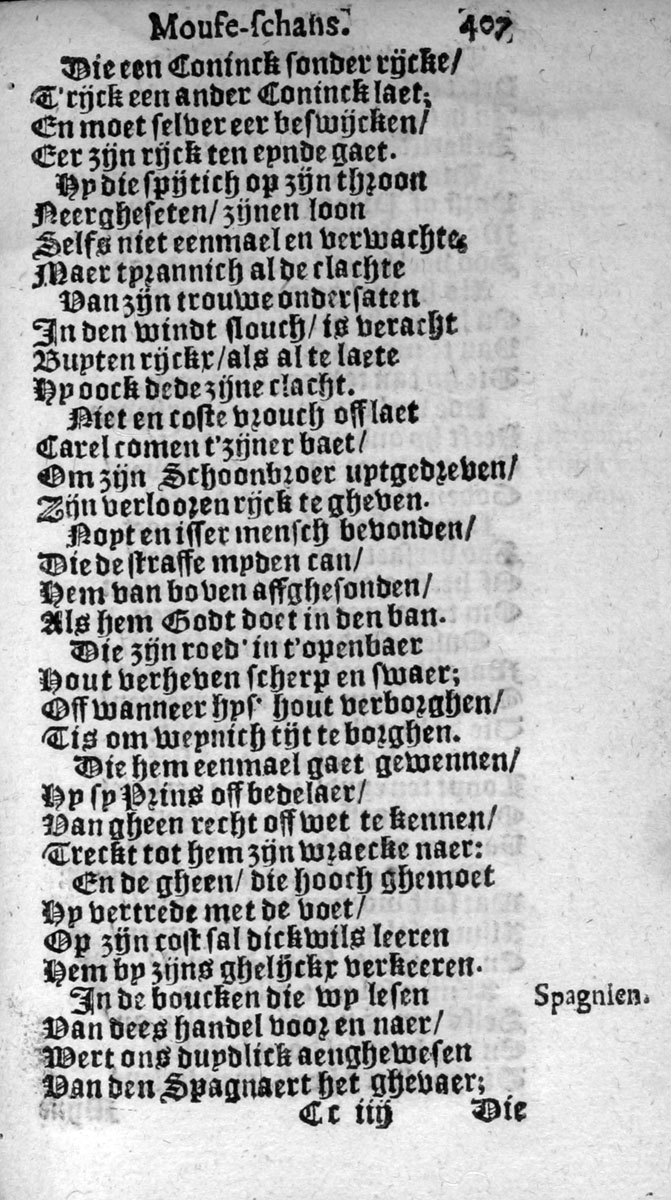 Mouse-schans. 407
Die een Coninck sonder rijcke/
T'rijck een ander Coninck laet;
En moet selver eer beswijcken/
Eer zijn rijck ten eynde gaet.
Hy die spijtich op zijn throon
Neergheseten/ zijnen loon
Selfs niet eenmael en verwachte;
Maer tyrannich al de clachte
Van zijn trouwe ondersaten
In den windt slouch/ is veracht
Buyten rijckx/ als al te laete
Hy oock dede zijne clacht.
Niet en coste vrouch off laet
Carel comen t'zijner baet/
Om zijn Schoonbroer uytgedreven/
Zijn verlooren rijck te gheven.
Noyt en isser mensch bevonden/
Die de straffe myden can/
Hem van boven affghesonden/
Als hem Godt doet in den ban.
Die zijn roed' in t'openbaer
Hout verheven scherp en swaer;
Off wanneer hys' hout verborghen/
Tis om weynich tijt te borghen.
Die hem eenmael gaet gewennen/
Hy sy Prins off bedelaer/
Van gheen recht off wet te kennen/
Treckt tot hem zijn wraecke naer:
En de gheen/ die hooch ghemoet
Hy vertrede met de voet/
Op zijn cost sal dickwils leeren
Hem by zijns ghelijckx verkeeren.
In de boucken die wy lesen Spagnien.
Van dees handel voor en naer/
Wert ons duydlick aenghewesen
Van den Spagnaert het ghevaer;
Cc iij Die